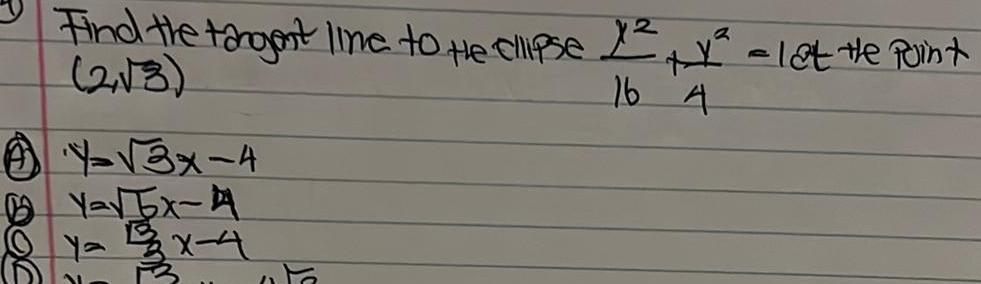 Find the tangent line to the ellipse x²/16 + y²/4 = 1 at the point
(2,√3)
Ⓐ y=√3x-4
Ⓑ y=√5x-4
Ⓒ y= √3/3 x-4
Ⓓ